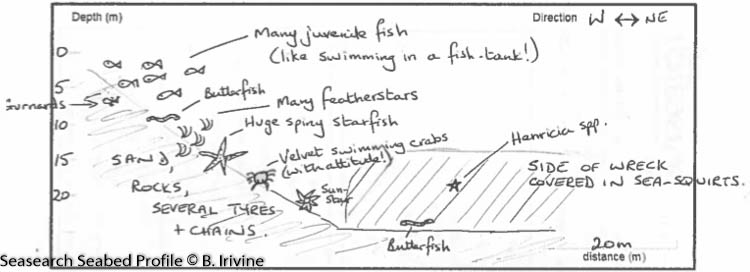 Depth (m)
Direction W ↔ NE
0
5
10
15
20
Many juvenile fish
(like swimming in a fish-tank!)
Gurnards
Butterfish
Many featherstars
Huge spiny starfish
Velvet swimming crabs
(with attitude!)
Henricia spp.
SAND,
ROCKS,
SEVERAL TYRES
+ CHAINS.
Sun-
Star
SIDE OF WRECK
COVERED IN SEA-SQUIRTS.
Butterfish
20m
distance (m)
Seasearch Seabed Profile © B. Irivine